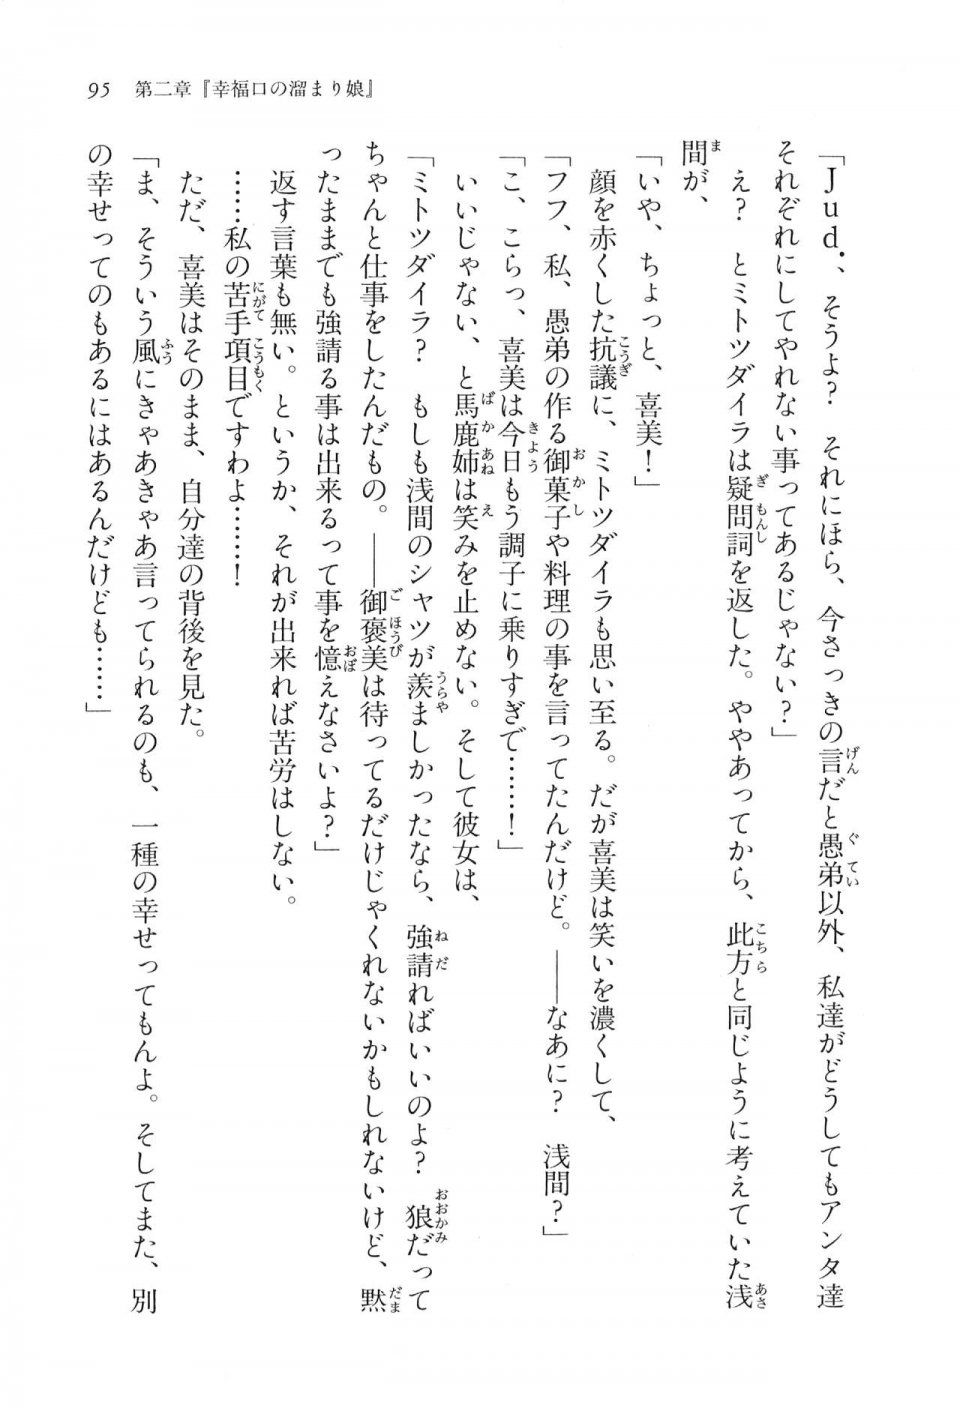 95　第二章『幸福口の溜まり娘』
「Jud.、そうよ？　それにほら、今さっきの言だと愚弟以外、私達がどうしてもアンタ達
それぞれにしてやれない事ってあるじゃない？」
　え？　とミトツダイラは疑問詞を返した。ややあってから、此方と同じように考えていた浅
間が、
「いや、ちょっと、喜美！」
　顔を赤くした抗議に、ミトツダイラも思い至る。だが喜美は笑いを濃くして、
「フフ、私、愚弟の作る御菓子や料理の事を言ってたんだけど。――なあに？　浅間？」
「こ、こらっ、喜美は今日もう調子に乗りすぎで……！」
　いいじゃない、と馬鹿姉は笑みを止めない。そして彼女は、
「ミトツダイラ？　もしも浅間のシャツが羨ましかったなら、強請ればいいのよ？　狼だって
ちゃんと仕事をしたんだもの。――御褒美は待ってるだけじゃくれないかもしれないけど、黙
ったままでも強請る事は出来るって事を憶えなさいよ？」
　返す言葉も無い。というか、それが出来れば苦労はしない。
　……私の苦手項目ですわよ……！
　ただ、喜美はそのまま、自分達の背後を見た。
「ま、そういう風にきゃあきゃあ言ってられるのも、一種の幸せってもんよ。そしてまた、別
の幸せってのもあるにはあるんだけども……」